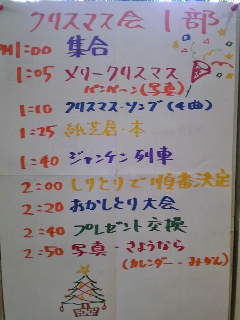 クリスマス会 1部
PM1:00 集合
1:05 メリークリスマス
パンパーン(写真)
1:10 クリスマス・ソング(4曲)
1:25 紙芝居・本
1:40 ジャンケン列車
2:00 しりとりで順番決定
2:20 おかしとり大会
2:40 プレゼント交換
2:50 写真・さようなら
(カレンダー・みかん)